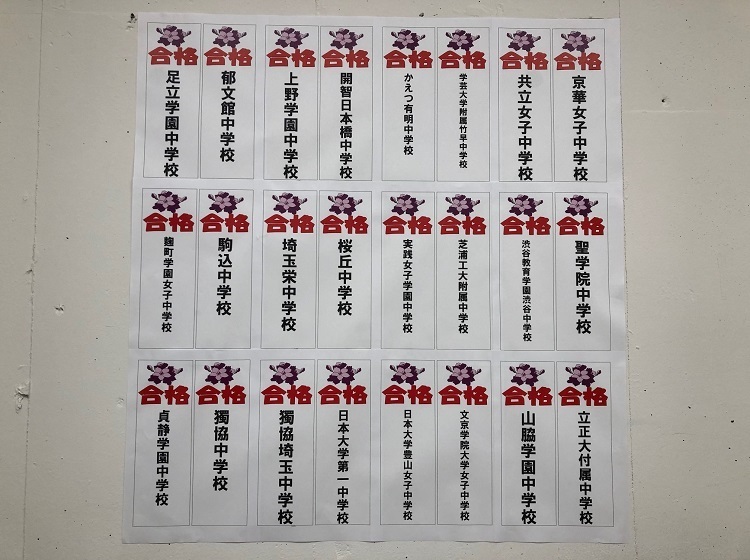 合格
足立学園中学校
合格
郁文館中学校
合格
上野学園中学校
合格
開智日本橋中学校
合格
かえつ有明中学校
合格
学芸大学附属竹早中学校
合格
共立女子中学校
合格
京華女子中学校
合格
麹町学園女子中学校
合格
駒込中学校
合格
埼玉栄中学校
合格
桜丘中学校
合格
実践女子学園中学校
合格
芝浦工大附属中学校
合格
渋谷教育学園渋谷中学校
合格
聖学院中学校
合格
貞静学園中学校
合格
獨協中学校
合格
獨協埼玉中学校
合格
日本大学第一中学校
合格
日本大学豊山女子中学校
合格
文京学院大学女子中学校
合格
山脇学園中学校
合格
立正大付属中学校